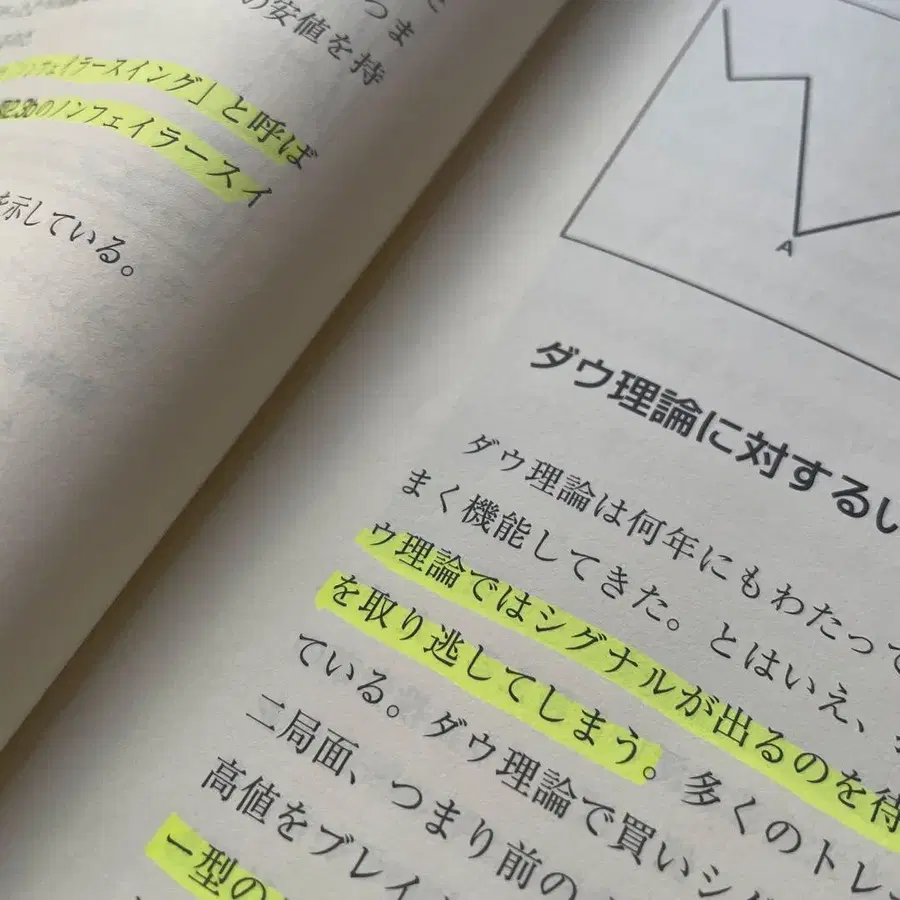 つま
の安値を持
ェイラースイング」と呼ば
のノンフェイラースイ
を示している。
A
ダウ理論に対するい
ダウ理論は何年にもわたって
まく機能してきた。とはいえ、
ウ理論ではシグナルが出るのを待
を取り逃してしまう。多くのトレ
ている。ダウ理論で買いシグ
二局面、つまり前の
高値をブレイ
ー型の